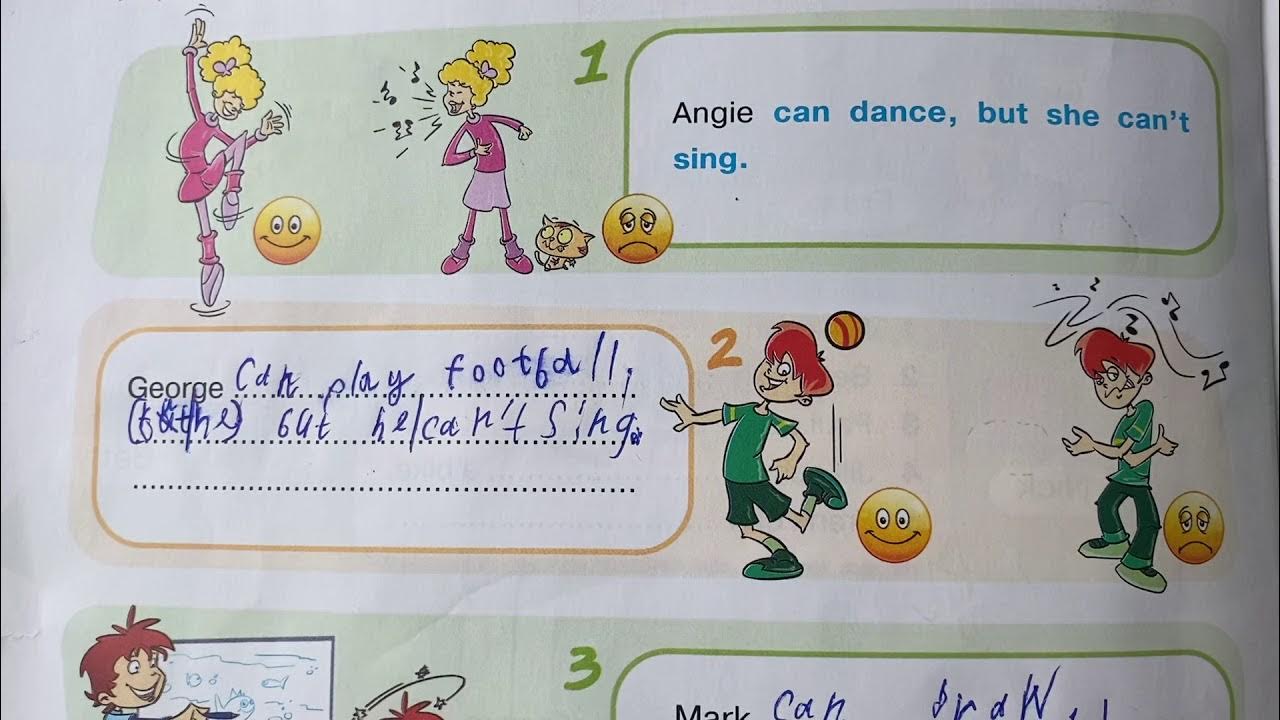 1
Angie can dance, but she can't
sing.
2
George can play football,
but he can't sing.
3
Mark can draw